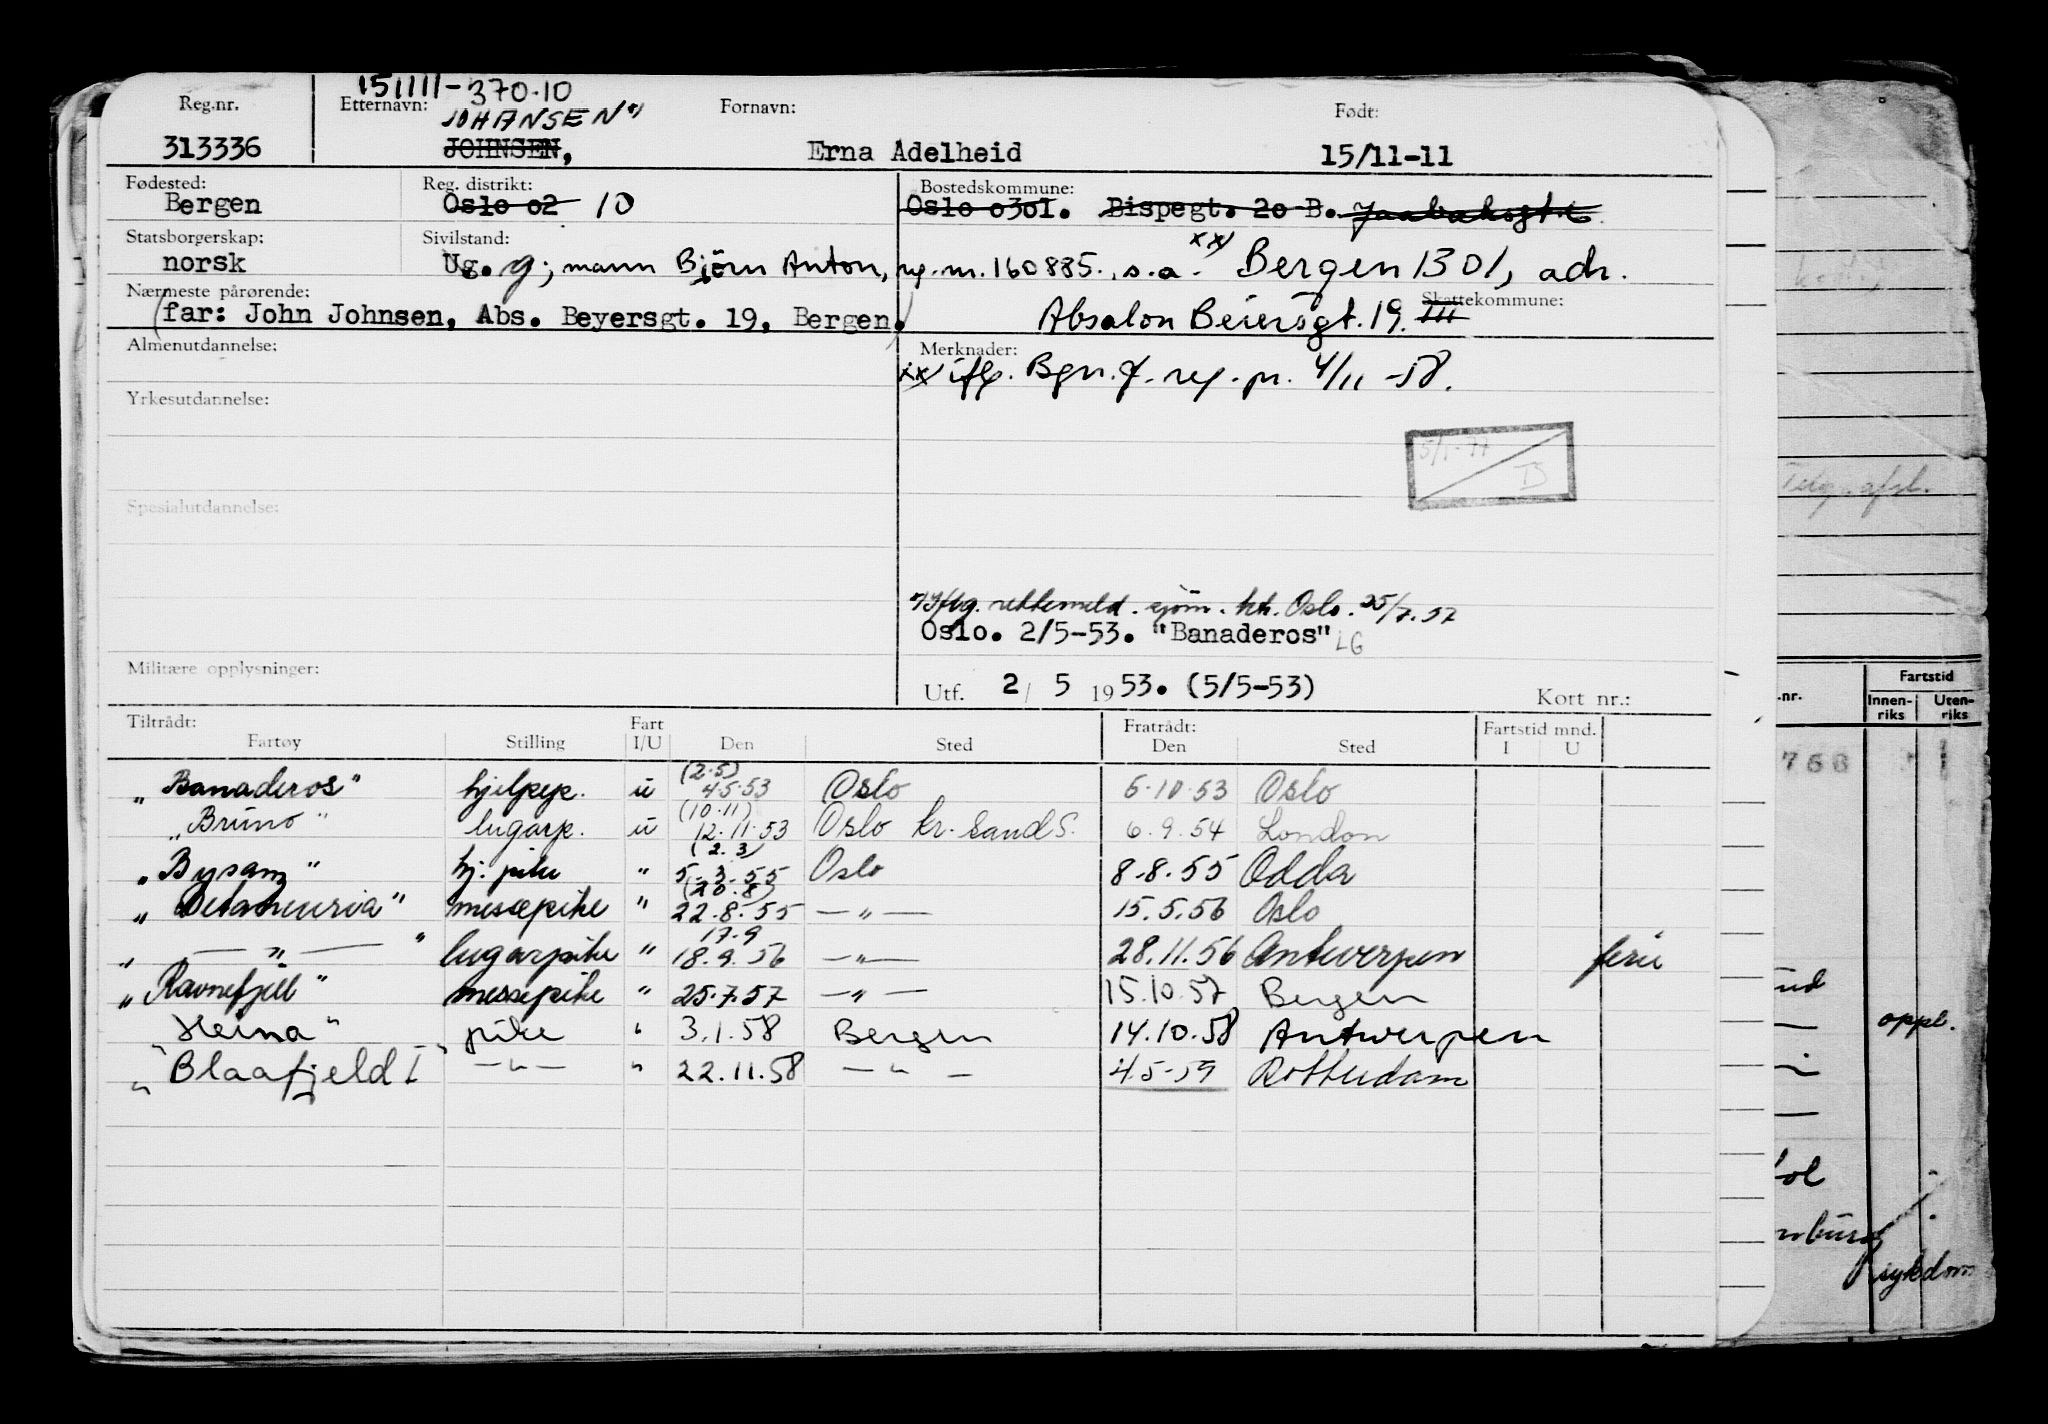 151111-370.10
Reg.nr. Etternavn: Fornavn: Født:
JOHANSEN x)
313336 JOHNSEN, Erna Adelheid 15/11-11
Fødested: Reg. distrikt: Bostedskommune:
Bergen Oslo 02 10 Oslo 0301. Bispegt. 20 B.
Statsborgerskap: Sivilstand: xx)
norsk Ug. g; mann Björn Anton, reg. nr. 160885., s.a. Bergen 1301, adr.
Nærmeste pårørende: Skattekommune:
(far: John Johnsen, Abs. Beyersgt. 19, Bergen.) Absalon Beiersgt. 19.
Almenutdannelse: Merknader:
xx) iflg. Bgn. f. reg. pr. 4/11 -58.
Yrkesutdannelse:
5/1-77
Spesialutdannelse:
x) Iflg. rettemeld. sjöm. kt. Oslo. 25/7.57
Oslo. 2/5-53. "Banaderos" LG
Militære opplysninger:
Utf. 2/ 5 1953. (5/5-53) Kort nr.:
Tiltrådt: Fart Fratrådt: Fartstid mnd.
Fartøy Stilling I/U Den Sted Den Sted I U
(2.5)
"Banaderos" hjelpep. u 4.5.53 Oslo 6.10.53 Oslo
(10.11)
"Bruno" lugarp. u 12.11.53 Oslo kr. sand S. 6.9.54 London
(2.3)
"Bysanz" hj: pike " 5.3.55 Oslo 8.8.55 Odda
(20.8)
messepike " 22.8.55 — " — 15.5.56 Oslo
17.9
" — " — " lugarpike " 18.9.56 — " — 28.11.56 Antwerpen ferie
"Ravnefjell" messepike " 25.7.57 — " — 15.10.57 Bergen
"Heina" pike " 3.1.58 Bergen 14.10.58 Antwerpen
"Blaafjeld I" — " — " 22.11.58 — " — 4.5-59 Rotterdam
Telegrafsk.
Fartstid
.nr. Innen-riks Uten-riks
766
oppl.
sykdom